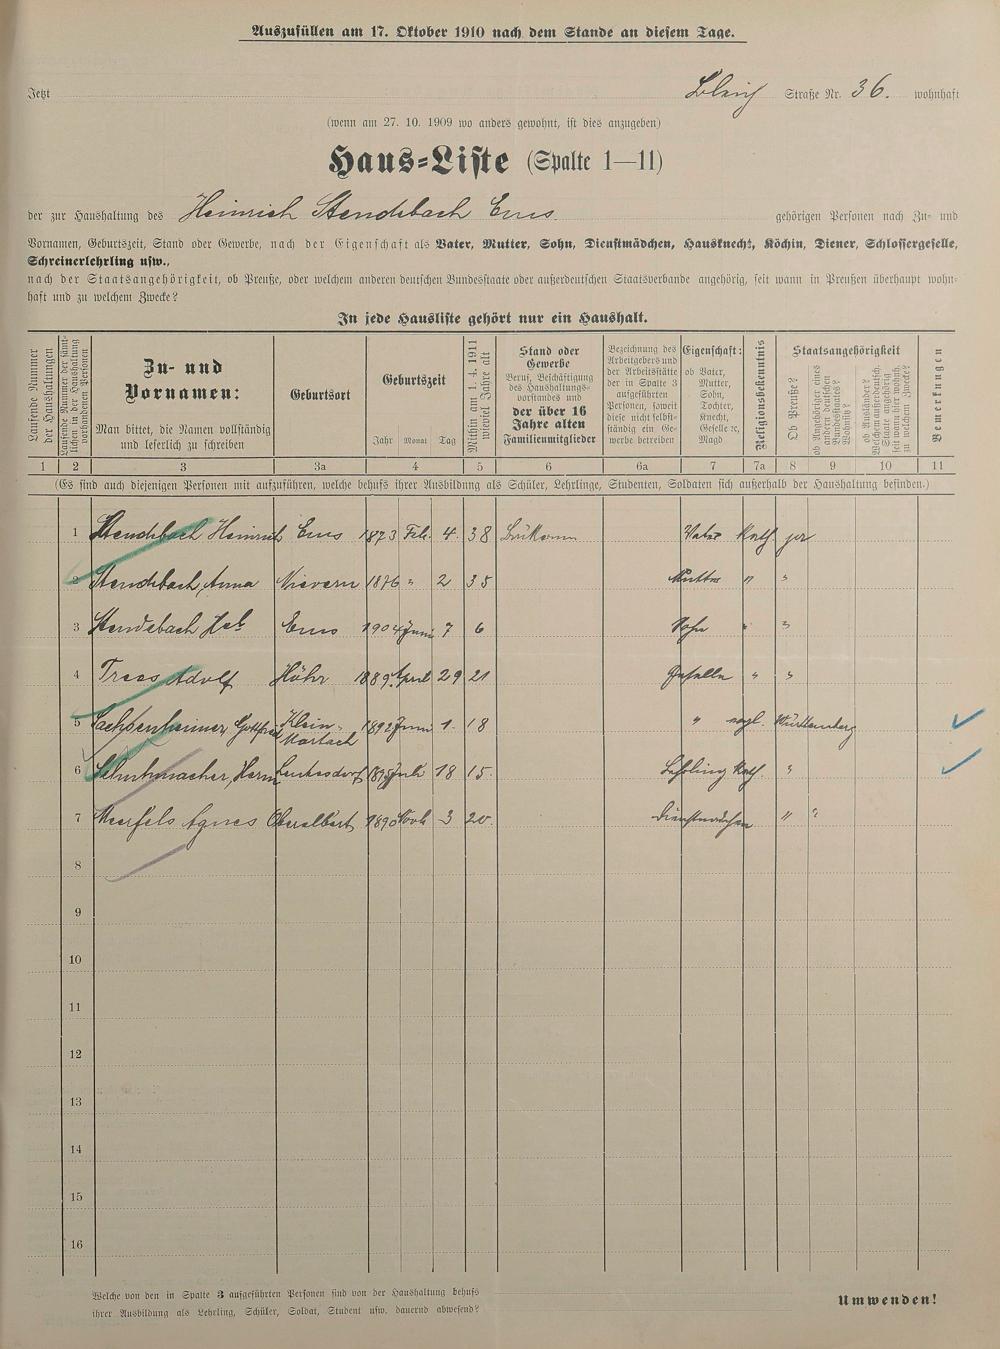 Auszufüllen am 17. Oktober 1910 nach dem Stande an diesem Tage.
Jetzt Straße Nr. 36. wohnhaft
(wenn am 27. 10. 1909 wo anders gewohnt, ist dies anzugeben)
Haus-Liste (Spalte 1—11)
der zur Haushaltung des Heinrich Stendebach Ems gehörigen Personen nach Zu- und
Vornamen, Geburtszeit, Stand oder Gewerbe, nach der Eigenschaft als Vater, Mutter, Sohn, Dienstmädchen, Hausknecht, Köchin, Diener, Schlossergeselle,
Schreinerlehrling usw.,
nach der Staatsangehörigkeit, ob Preuße, oder welchem anderen deutschen Bundesstaate oder außerdeutschen Staatsverbande angehörig, seit wann in Preußen überhaupt wohn-
haft und zu welchem Zwecke?
In jede Hausliste gehört nur ein Haushalt.
Laufende Nummer
der Haushaltungen
Laufende Nummer der sämt-
lichen in der Haushaltung
vorhandenen Personen
Zu- und
Vornamen:
Man bittet, die Namen vollständig
und leserlich zu schreiben
Geburtsort
Geburtszeit
Jahr Monat Tag
Mithin am 1. 4. 1911
wieviel Jahre alt
Stand oder
Gewerbe
Beruf, Beschäftigung
des Haushaltungs-
vorstandes und
der über 16
Jahre alten
Familienmitglieder
Bezeichnung des
Arbeitgebers und
der Arbeitsstätte
der in Spalte 3
aufgeführten
Personen, soweit
diese nicht selbst-
ständig ein Ge-
werbe betreiben
Eigenschaft:
ob Vater,
Mutter,
Sohn,
Tochter,
Knecht,
Geselle ꝛc,
Magd
Religionsbekenntnis
Staatsangehörigkeit
Ob Preuße?
ob Angehöriger eines
andern deutschen
Bundesstaates?
Wohnsitz?
ob Ausländer?
Welchem außerdeutsch.
Staate angehörig
seit wann hier wohnh.
zu welchem Zwecke?
Bemerkungen
1 2 3 3a 4 5 6 6a 7 7a 8 9 10 11
(Es sind auch diejenigen Personen mit aufzuführen, welche behufs ihrer Ausbildung als Schüler, Lehrlinge, Studenten, Soldaten sich außerhalb der Haushaltung befinden.)
1 Stendebach Heinrich Ems 1873 Feb. 4. 38 Vater Kath. ja
2 Stendebach, Anna Nievern 1876 " 2 35 Mutter " "
3 Stendebach Ems 1904 Juni 7 6 Sohn " "
4 Trees Adolf Höhr 1889 April 29 21 Geselle " "
5 Sachsenheimer Gottfried Klein- 1892 Juni 1. 18 " evgl. Württemberg
6 Schuhmacher, Herm. Juli 18 15. Lehrling Kath. "
7 Agnes Oberelbert 1890 3 20. Dienstmädchen " "
8
9
10
11
12
13
14
15
16
Welche von den in Spalte 3 aufgeführten Personen sind von der Haushaltung behufs
ihrer Ausbildung als Lehrling, Schüler, Soldat, Student usw. dauernd abwesend?
Umwenden!